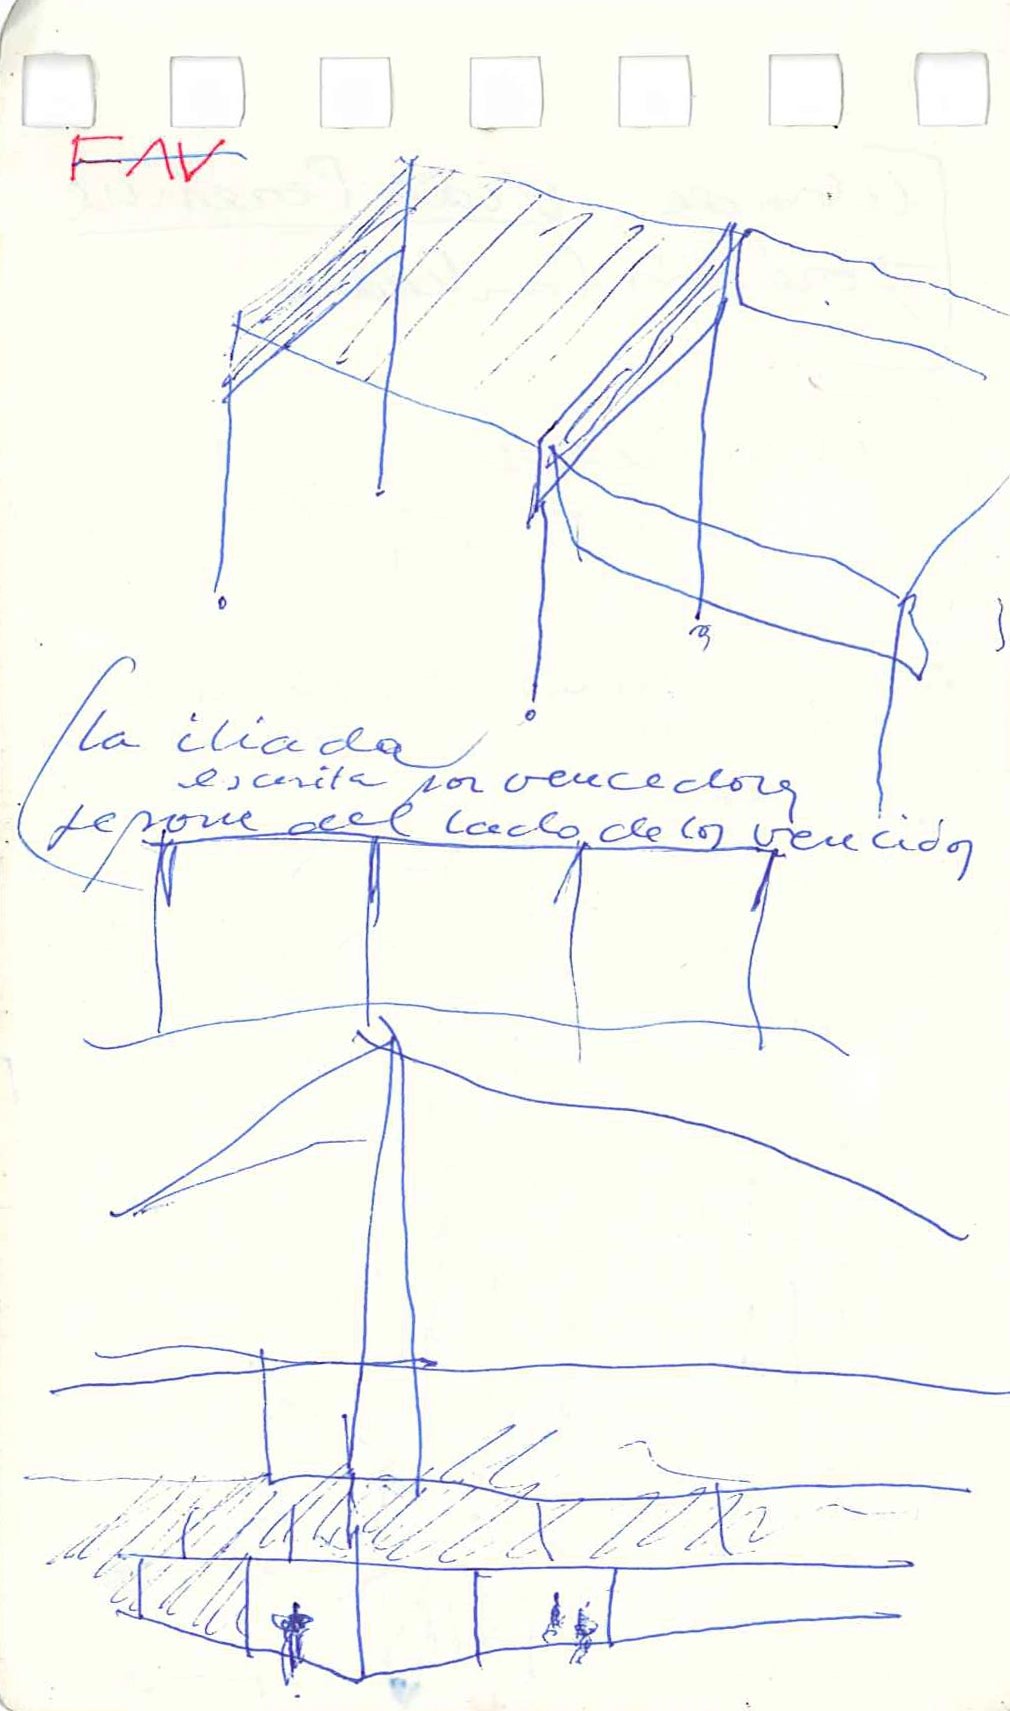 FAV
la iliada
escrita por vencedores
se pone del lado de los vencidos